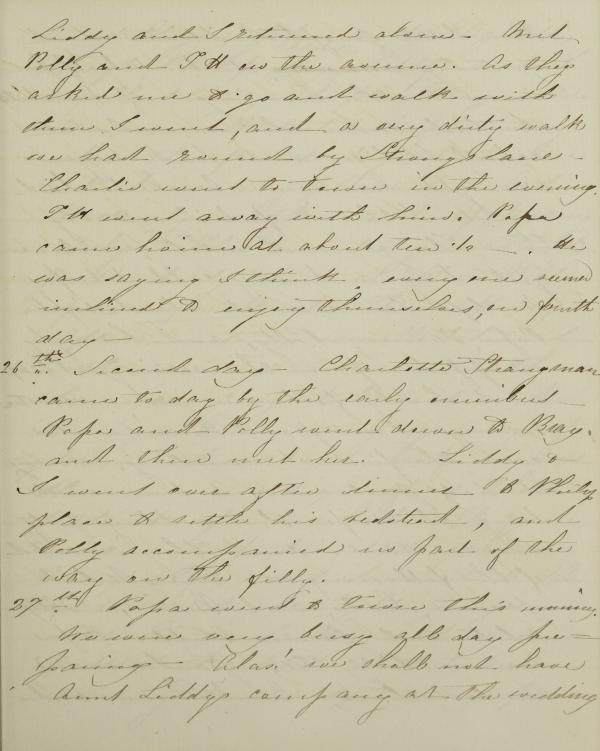 Liddy and I returned alone – Met
Polly and T H on the avenue. As they
asked me to go and walk with
them I went, and a very dirty walk
we had round by Strongs lane –
Charlie went to town in the evening.
T H went away with him. Papa
came home at about ten ½ – . He
was saying I think every one seemed
inclined to enjoy themselves, on fourth
day –
26th. Second day – Charlotte Strangman
came to day by the early omnibus –
Papa and Polly went down to Bray.
and then met her. Liddy &
I went over after dinner to Philip
place to settle his bedstead, and
Polly accompanied us part of the
way on the filly.
27th Papa went to town this morning.
We were very busy all day pre=
paring – Alas! we shall not have
Aunt Liddys company at the wedding